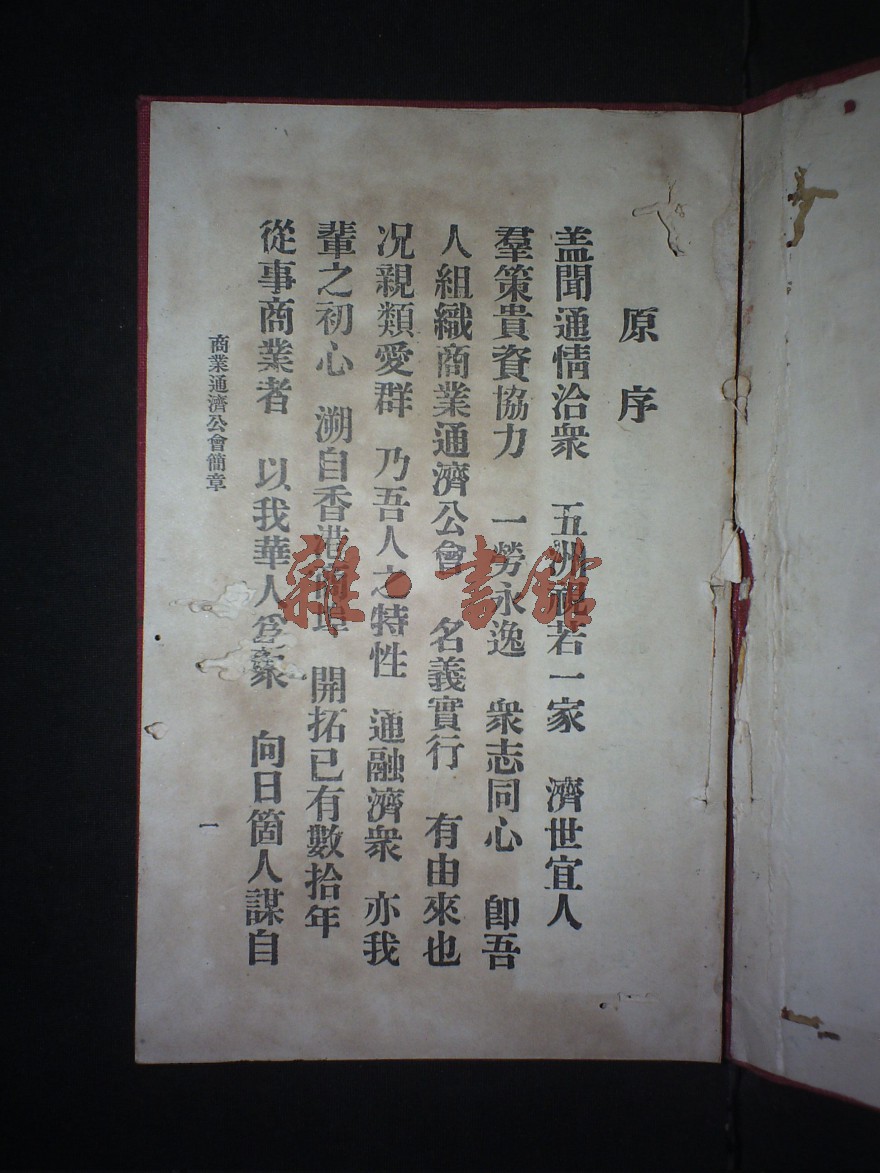 原序
盖聞通情洽衆　五洲視若一家　濟世宜人
羣策貴資協力　一勞永逸　衆志同心　卽吾
人組織商業通濟公會　名義實行　有由來也
况親類愛群　乃吾人之特性　通融濟衆　亦我
輩之初心　溯自香港埠　開拓已有數拾年
從事商業者　以我華人爲衆　向日箇人謀自
商業通濟公會簡章
一
雜·書館